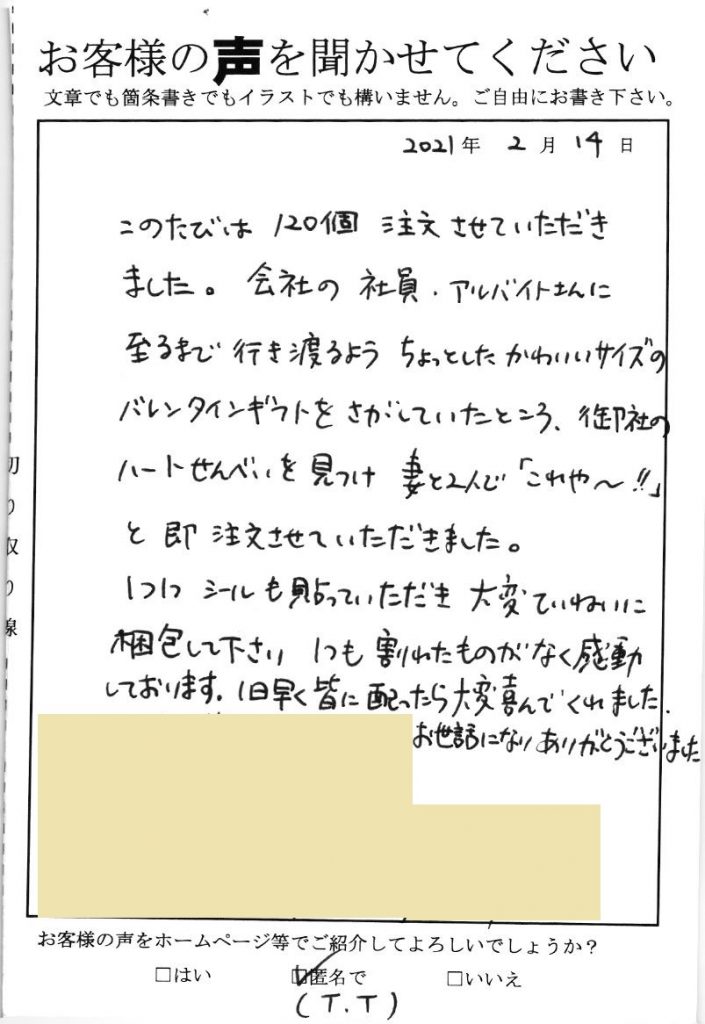 お客様の声を聞かせてください
文章でも箇条書きでもイラストでも構いません。ご自由にお書き下さい。
2021年 2月 14日
このたびは 120個 注文させていただき
ました。会社の 社員・アルバイトさんに
至るまで 行き渡るよう ちょっとした かわいいサイズの
バレンタインギフトを さがしていたところ、御社の
ハートせんべいを 見つけ 妻と2人で「これや〜!!」
と 即 注文させていただきました。
1つ1つ シールも貼っていただき 大変ていねいに
梱包して下さい 1つも 割れたものがなく感動
しております。1日早く皆に配ったら大変喜んでくれました.
お世話になりありがとうございました
切り取り線
お客様の声をホームページ等でご紹介してよろしいでしょうか？
□はい ☑匿名で □いいえ
(T.T)